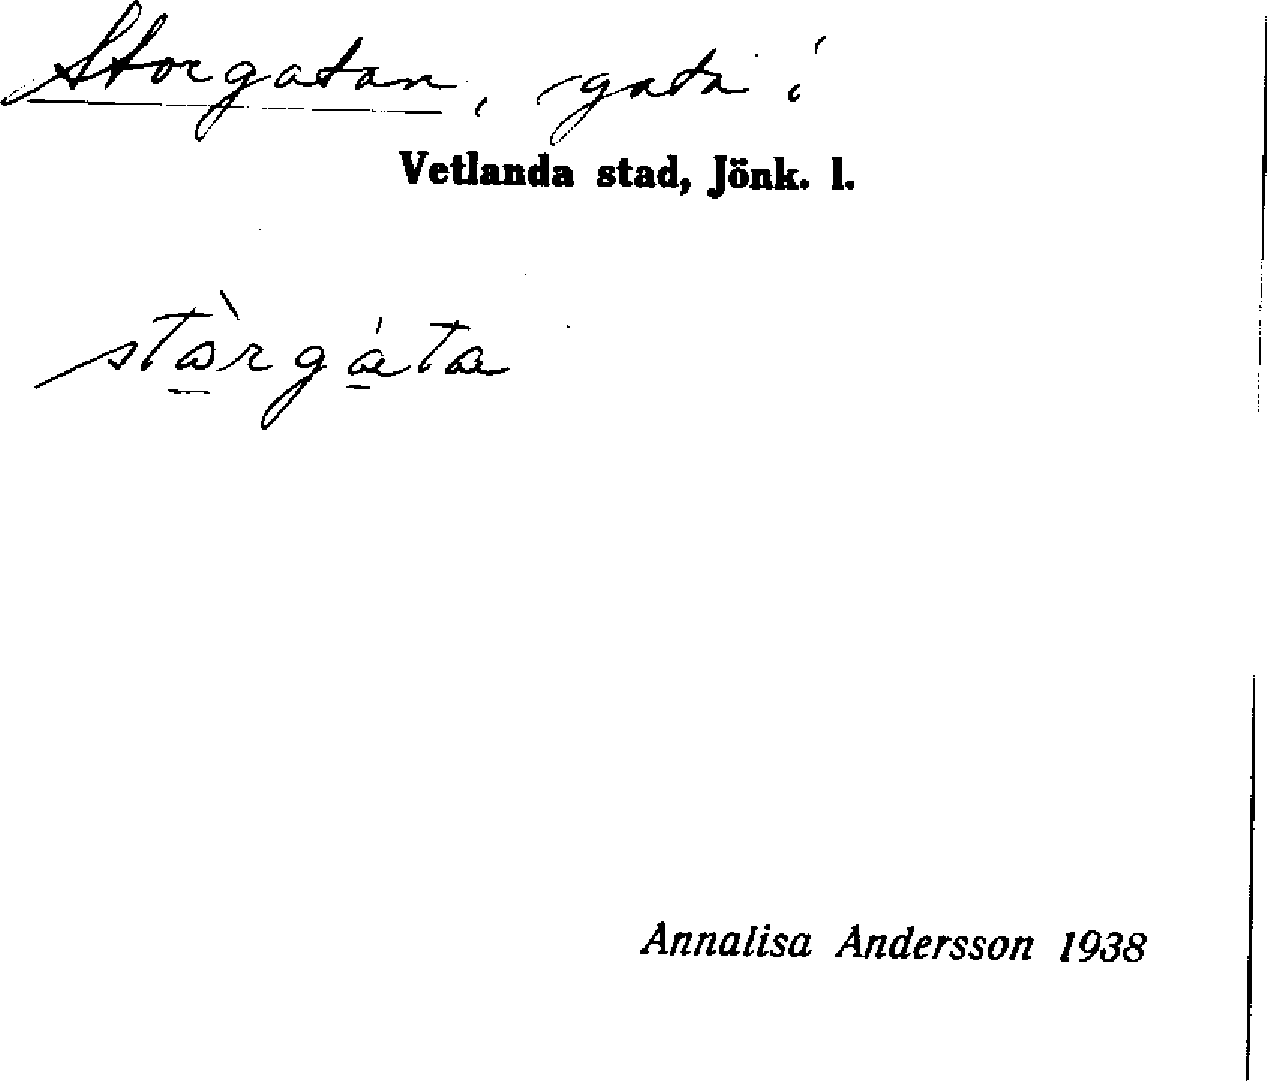 Storgatan, gata i
Vetlanda stad, Jönk. l.
stàrgáta
Annalisa Andersson 1938